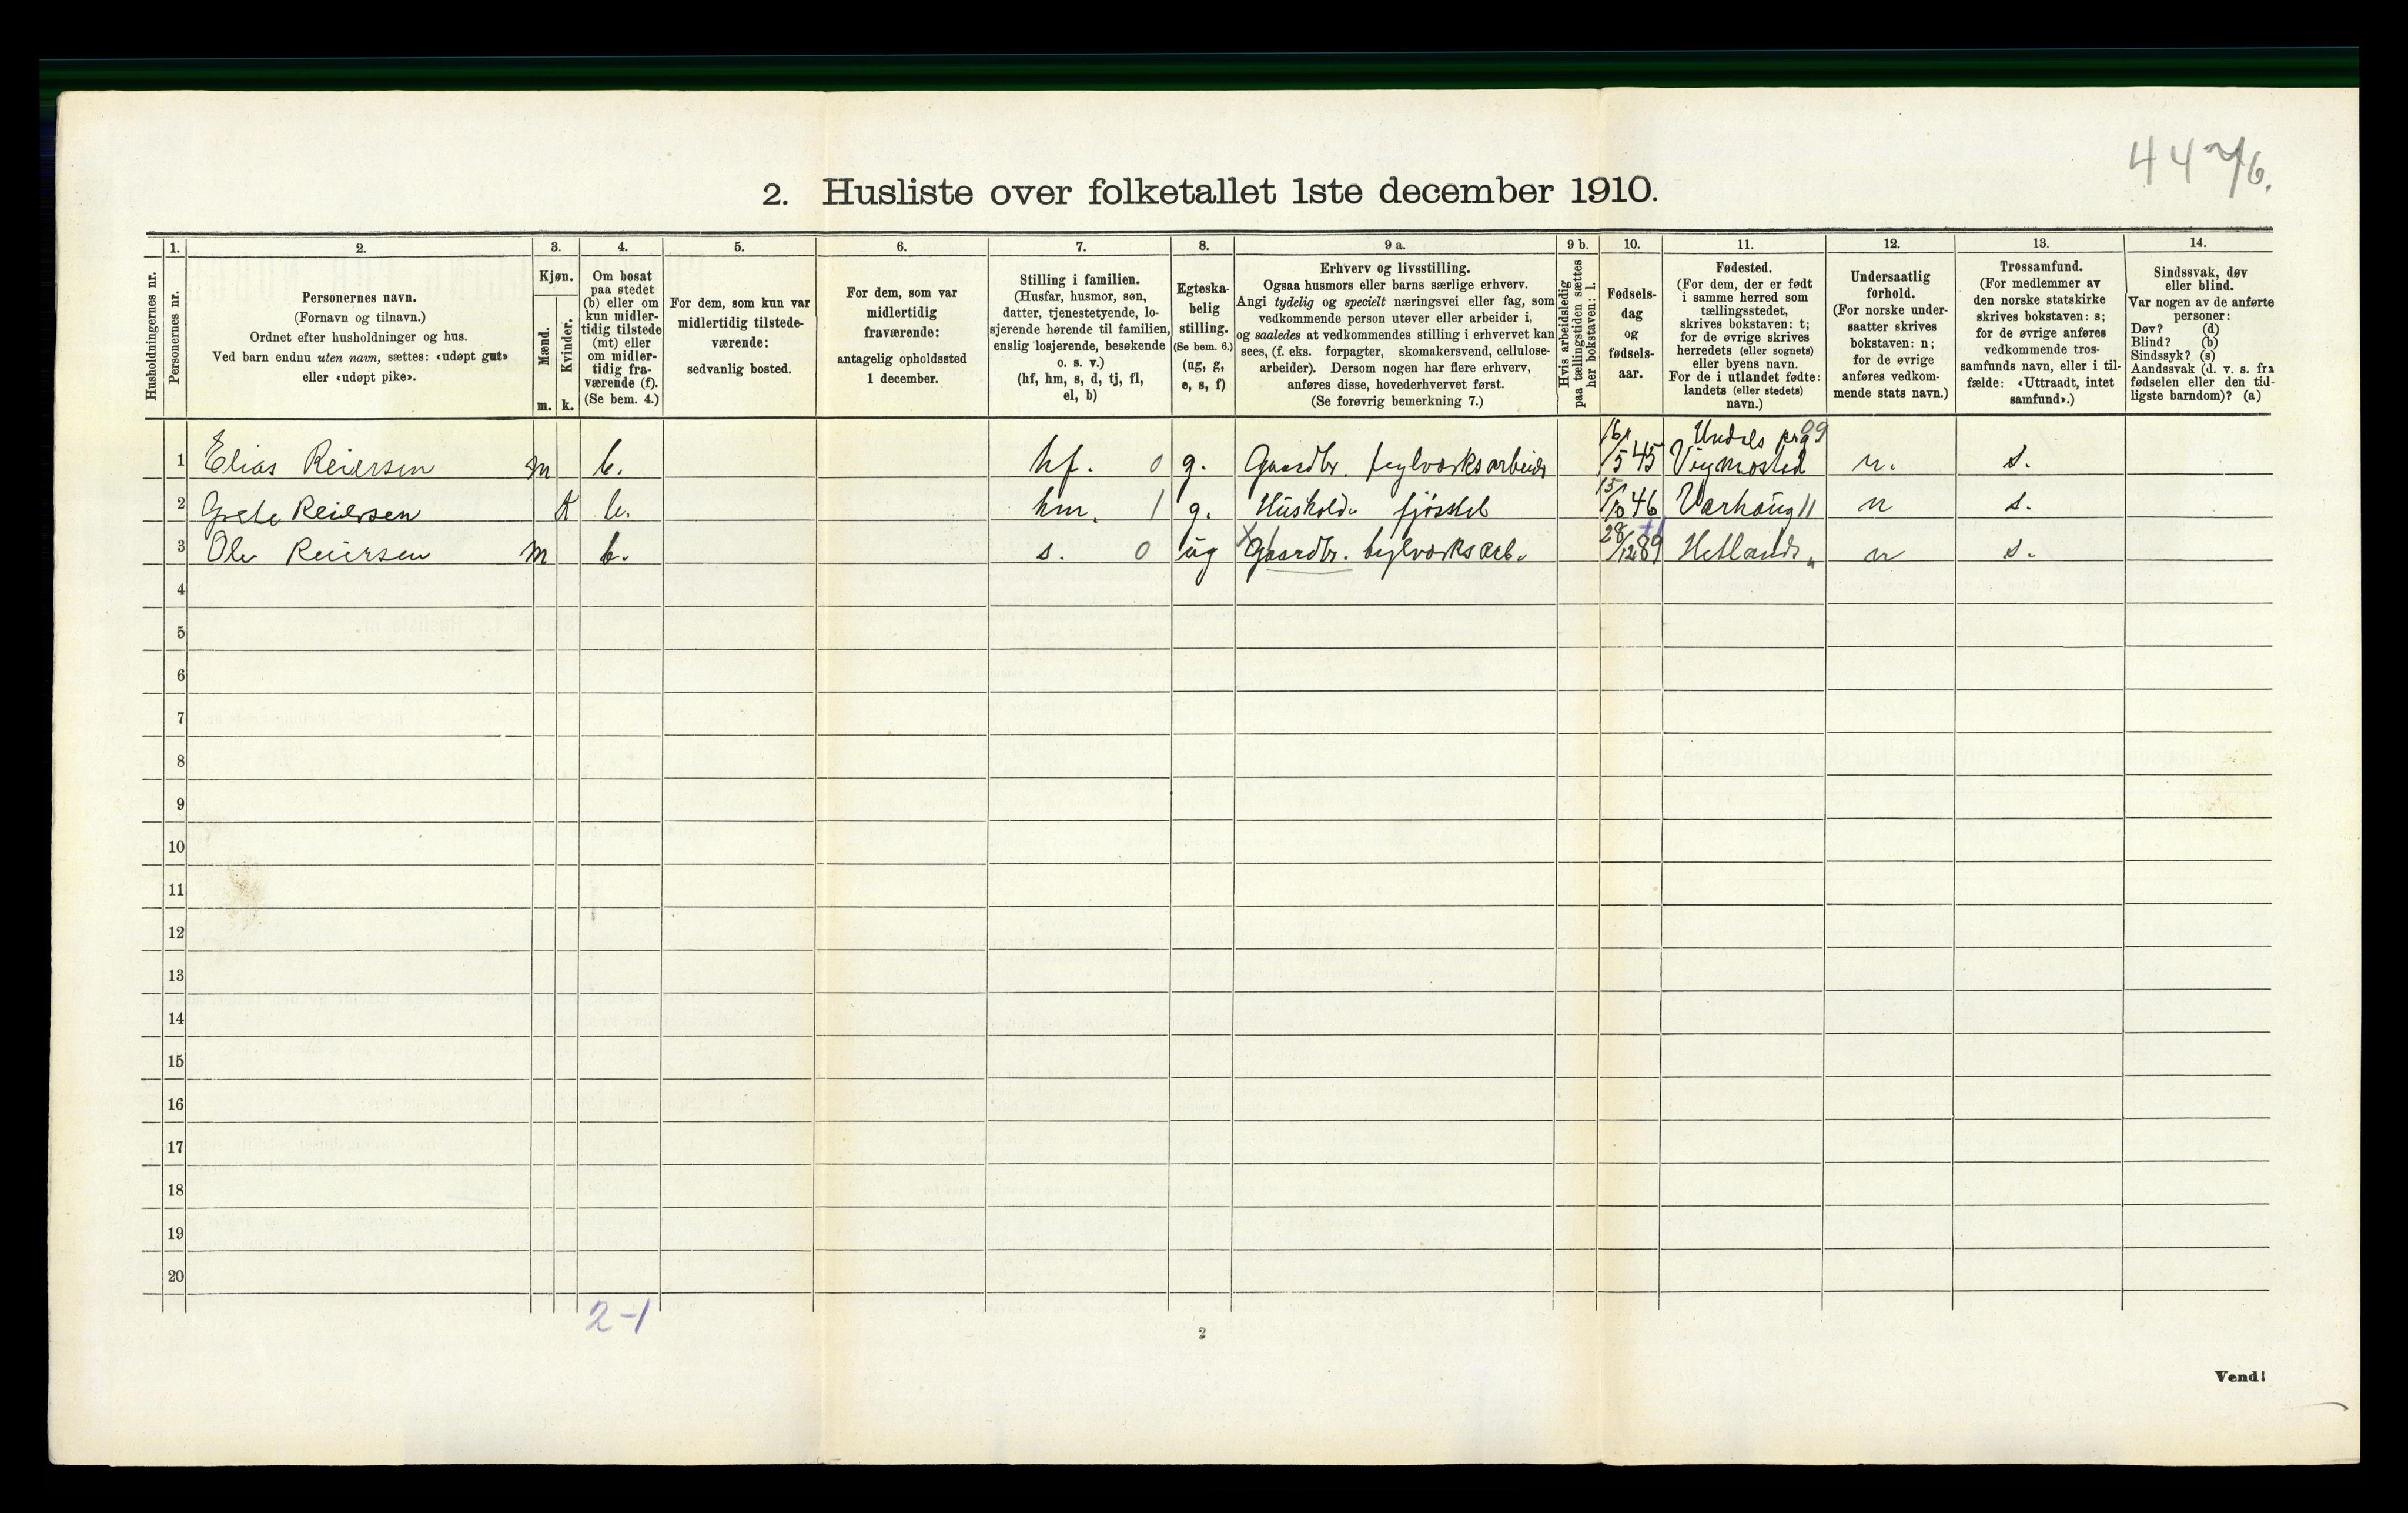 2. Husliste over folketallet 1ste december 1910.
Husholdningernes nr.
1.
Personernes nr.
2.
Personernes navn.
(Fornavn og tilnavn.)
Ordnet efter husholdninger og hus.
Ved barn endnu uten navn, sættes: «udøpt gut»
eller «udøpt pike».
3.
Kjøn.
Mænd.
Kvinder.
m. k.
4.
Om bosat
paa stedet
(b) eller om
kun midler-
tidig tilstede
(mt) eller
om midler-
tidig fra-
værende (f).
(Se bem. 4.)
5.
For dem, som kun var
midlertidig tilstede-
værende:
sedvanlig bosted.
6.
For dem, som var
midlertidig
fraværende:
antagelig opholdssted
1 december.
7.
Stilling i familien.
(Husfar, husmor, søn,
datter, tjenestetyende, lo-
sjerende hørende til familien,
enslig losjerende, besøkende
o. s. v.)
(hf, hm, s, d, tj, fl,
el, b)
8.
Egteska-
belig
stilling.
(Se bem. 6.)
(ug, g,
e, s, f)
9 a.
Erhverv og livsstilling.
Ogsaa husmors eller barns særlige erhverv.
Angi tydelig og specielt næringsvei eller fag, som
vedkommende person utøver eller arbeider i,
og saaledes at vedkommendes stilling i erhvervet kan
sees, (f. eks. forpagter, skomakersvend, cellulose-
arbeider). Dersom nogen har flere erhverv,
anføres disse, hovederhvervet først.
(Se forøvrig bemerkning 7.)
9 b.
Hvis arbeidsledig
paa tællingstiden sættes
her bokstaven: l.
10.
Fødsels-
dag
og
fødsels-
aar.
11.
Fødested.
(For dem, der er født
i samme herred som
tællingsstedet,
skrives bokstaven: t;
for de øvrige skrives
herredets (eller sognets)
eller byens navn.
For de i utlandet fødte:
landets (eller stedets)
navn.)
12.
Undersaatlig
forhold.
(For norske under-
saatter skrives
bokstaven: n;
for de øvrige
anføres vedkom-
mende stats navn.)
13.
Trossamfund.
(For medlemmer av
den norske statskirke
skrives bokstaven: s;
for de øvrige anføres
vedkommende tros-
samfunds navn, eller i til-
fælde: «Uttraadt, intet
samfund».)
14.
Sindssvak, døv
eller blind.
Var nogen av de anførte
personer:
Døv? (d)
Blind? (b)
Sindssyk? (s)
Aandssvak (d. v. s. fra
fødselen eller den tid-
ligste barndom)? (a)
1 Elias Reiersen m b. hf. 0 g. Gaardbr. 16/5 45 Undals Vigmosted n. s.
2 Grete Reiersen k b. hm. 1 g. Hushold. fjösstel 15/10 46 Varhaug 11 n s.
3 Ole Reiersen m b. s. 0 ug Gaardbr. teglværksarb. 28/12 89 Hetland n s.
4
5
6
7
8
9
10
11
12
13
14
15
16
17
18
19
20
2-1
2
Vend!